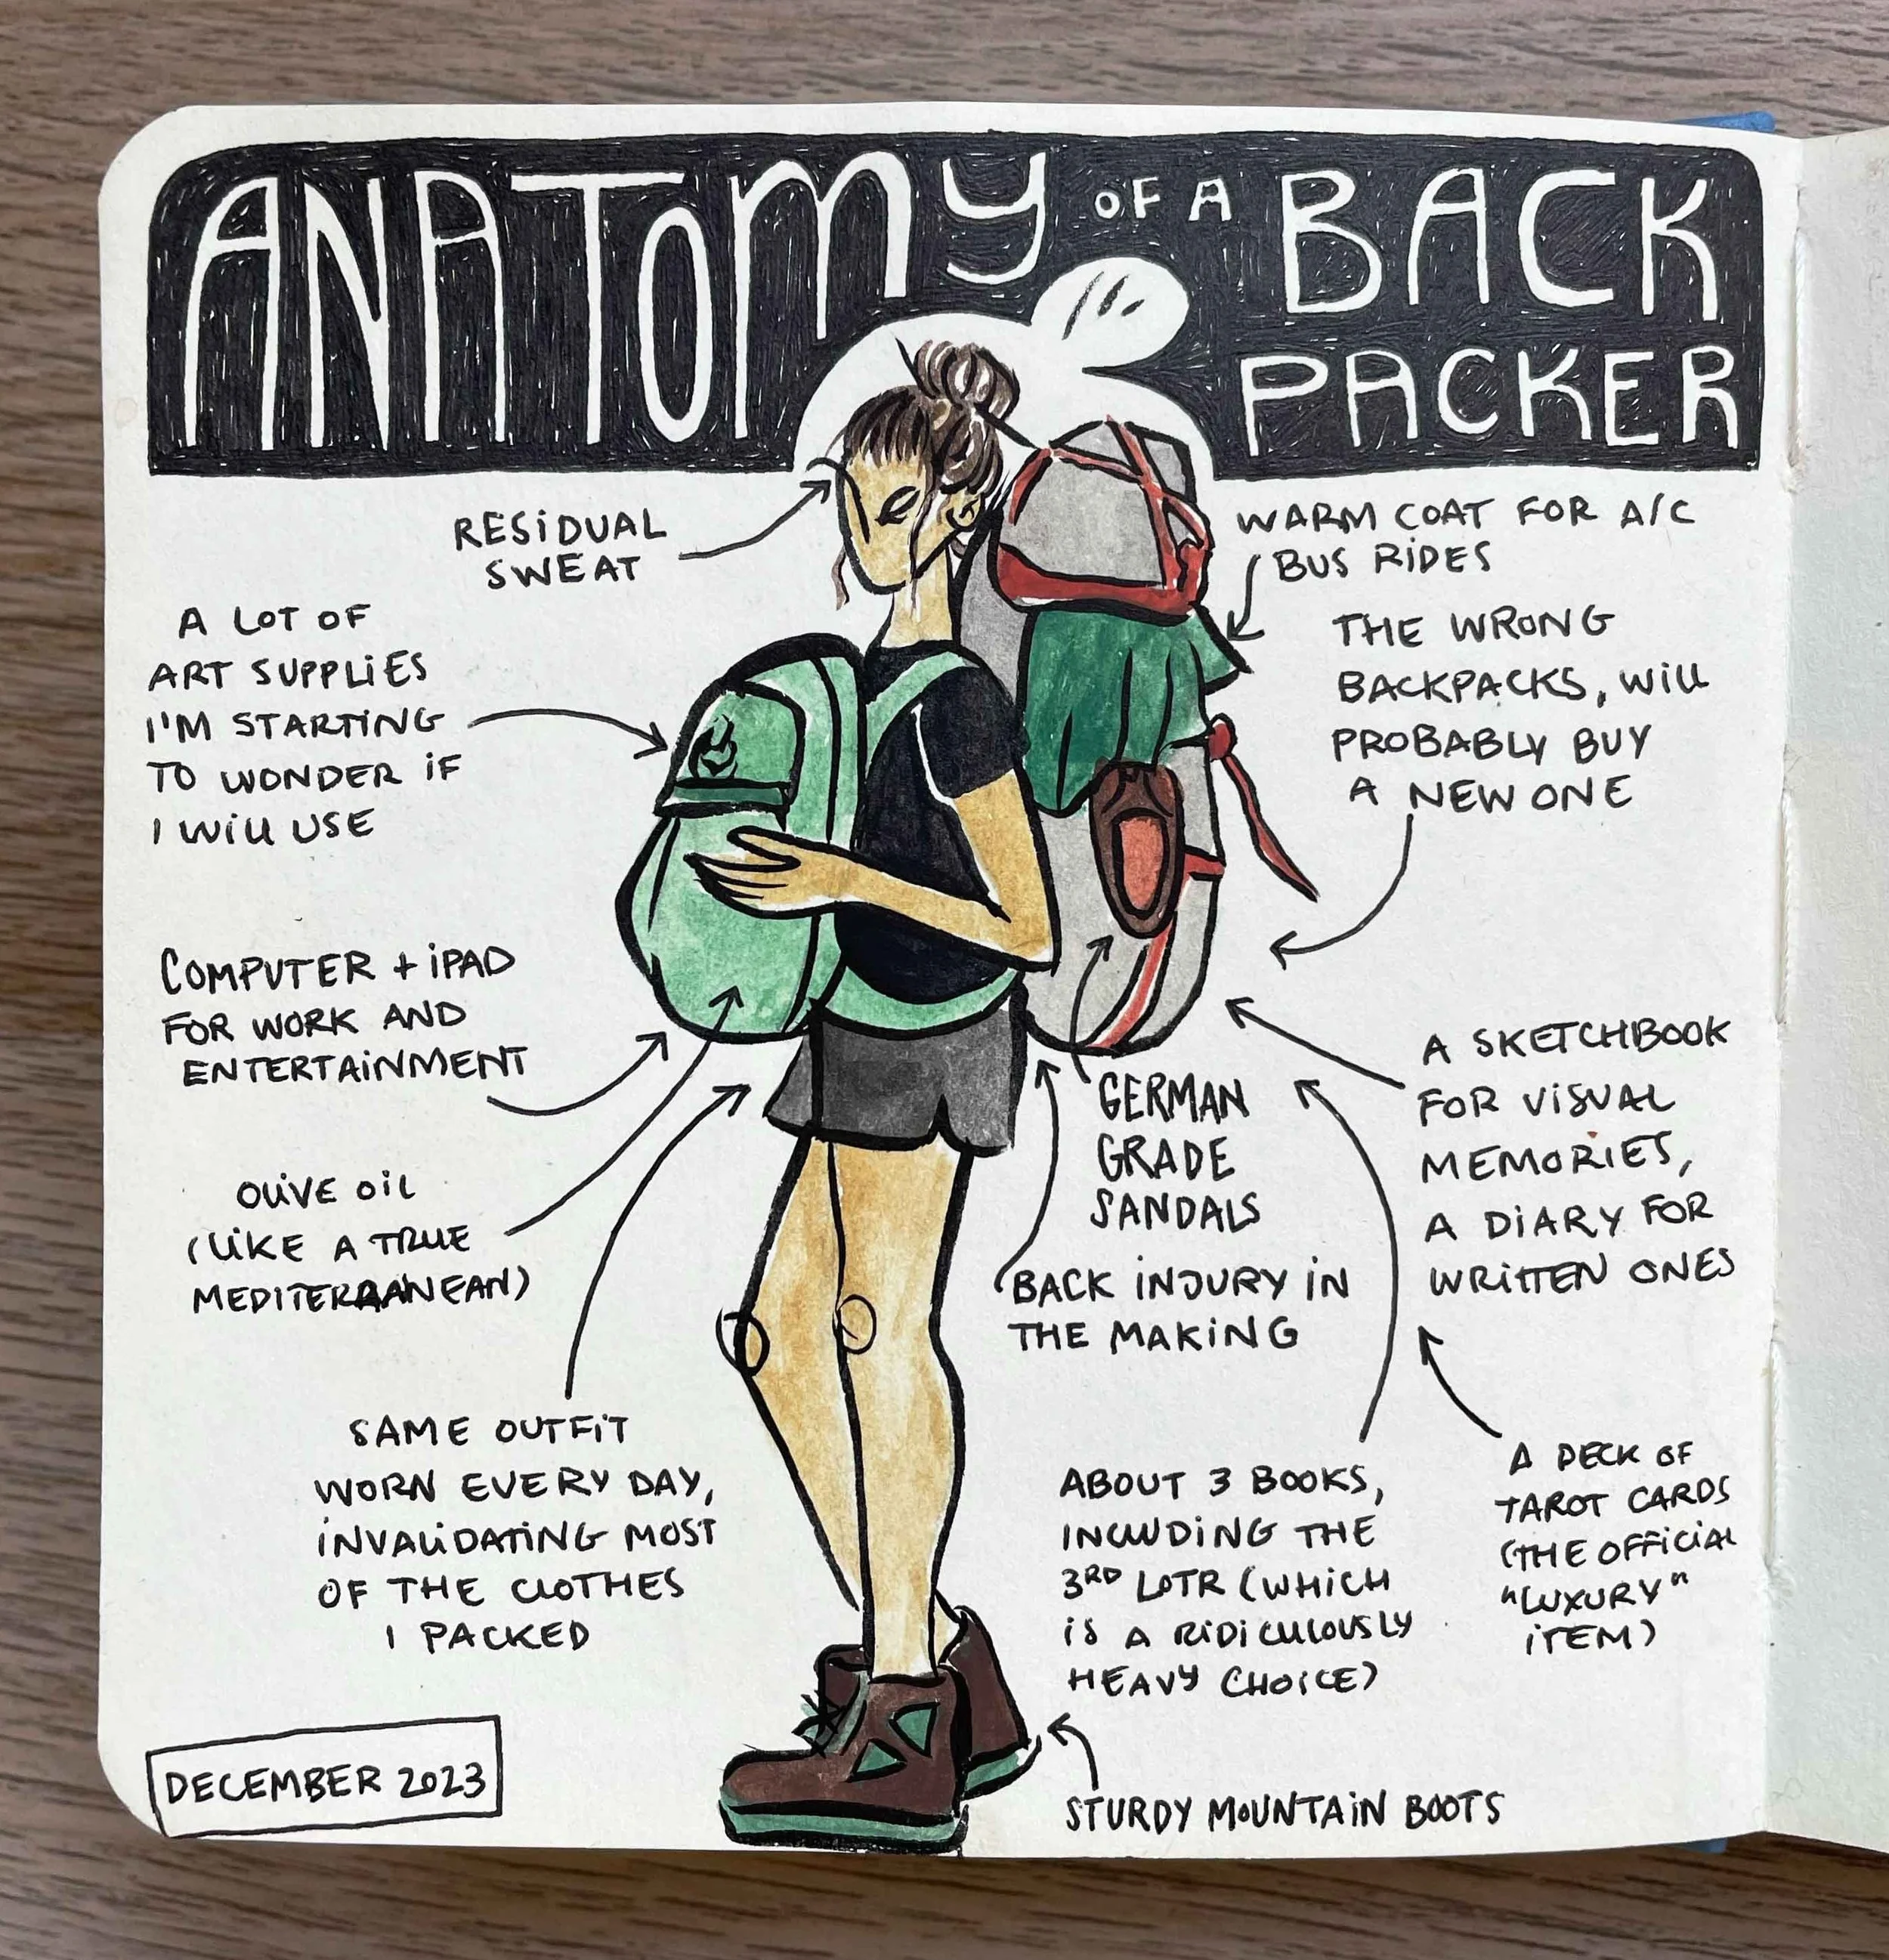 ANATOMY OF A BACK
PACKER
RESIDUAL
SWEAT
WARM COAT FOR A/C
BUS RIDES
A LOT OF
ART SUPPLIES
I'M STARTING
TO WONDER IF
I WILL USE
THE WRONG
BACKPACKS, WILL
PROBABLY BUY
A NEW ONE
COMPUTER + IPAD
FOR WORK AND
ENTERTAINMENT
GERMAN
GRADE
SANDALS
A SKETCHBOOK
FOR VISUAL
MEMORIES,
A DIARY FOR
WRITTEN ONES
OLIVE OIL
(LIKE A TRUE
MEDITERRANEAN)
BACK INJURY IN
THE MAKING
SAME OUTFIT
WORN EVERY DAY,
INVALIDATING MOST
OF THE CLOTHES
I PACKED
ABOUT 3 BOOKS,
INCLUDING THE
3RD LOTR (WHICH
IS A RIDICULOUSLY
HEAVY CHOICE)
A DECK OF
TAROT CARDS
(THE OFFICIAL
"LUXURY"
ITEM)
STURDY MOUNTAIN BOOTS
DECEMBER 2023